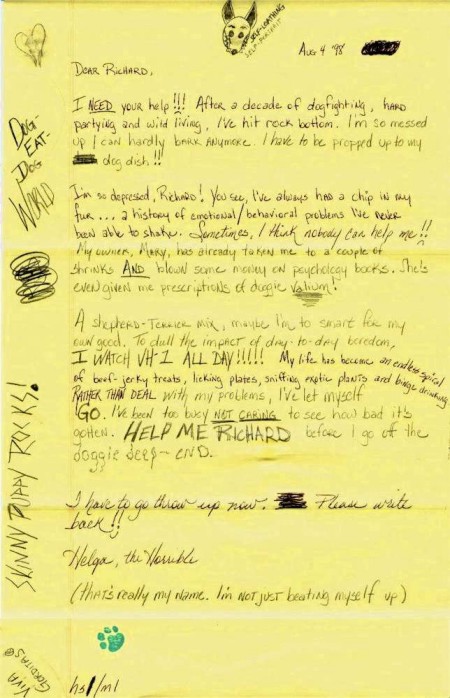 SELF-LOATHING
SELF-PORTRAIT
Aug 4 '98
Dear Richard,
I NEED your help!!! After a decade of dogfighting, hard
partying and wild living, I've hit rock bottom. I'm so messed
up I can hardly bark anymore. I have to be propped up to my
dog dish!!
I'm so depressed, Richard! You see, I've always had a chip in my
fur... a history of emotional/behavioral problems I've never
been able to shake. Sometimes, I think nobody can help me!!
My owner, Mary, has already taken me to a couple of
shrinks AND blown some money on psychology books. She's
even given me prescriptions of doggie Valium!
A shepherd-terrier mix, maybe I'm to smart for my
own good. To dull the impact of day-to-day boredom,
I WATCH VH-1 ALL DAY!!!!! My life has become an endless spiral
of beef-jerky treats, licking plates, sniffing exotic plants and binge drinking.
RATHER THAN DEAL with my problems, I've let myself
GO. I've been too busy NOT CARING to see how bad it's
gotten. HELP ME RICHARD before I go off the
doggie deep-end.
I have to go throw up now. Please write
back!!
Helga, the Horrible
(that's really my name. I'm not just beating myself up)
DOG-
EAT-
DOG
WORLD
SKINNY PUPPY ROCKS!
VIVA
GORDITAS
hsl/ml